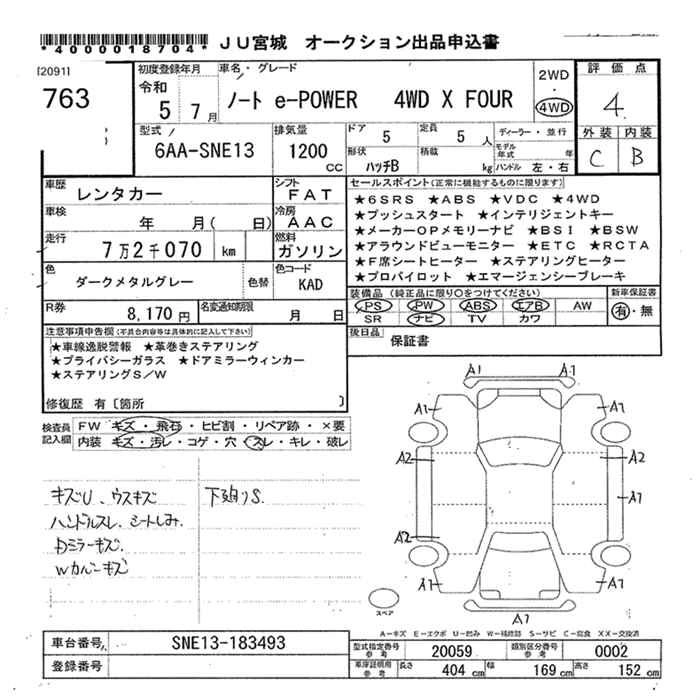 *4000018704* JU宮城 オークション出品申込書
[2091]
763
初度登録年月 車名・グレード 2WD 評価点
令和 5 7月 ノート e-POWER 4WD X FOUR 4WD 4
型式 排気量 ドア 5 定員 5 人 ディーラー・並行 外装 内装
6AA-SNE13 1200 cc 形状 ハッチB 積載 kg モデル年式 年 ハンドル 左・右 C B
車歴 レンタカー シフト FAT セールスポイント(正常に機能するものに限ります)
車検 年 月( 日) 冷房 AAC ★6SRS ★ABS ★VDC ★4WD
★プッシュスタート ★インテリジェントキー
走行 7万2千070 km 燃料 ガソリン ★メーカーOPメモリーナビ ★BSI ★BSW
★アラウンドビューモニター ★ETC ★RCTA
色 ダークメタルグレー 色替 色コード KAD ★F席シートヒーター ★ステアリングヒーター
★プロパイロット ★エマージェンシーブレーキ
R券 8,170円 名変通知期限 月 日 装備品(純正品に限り〇をつけてください) 新車保証書
PS PW ABS エアB AW 有・無
SR ナビ TV カワ
注意事項申告欄(不具合内容等は具体的に記入して下さい) 後日品 保証書
★車線逸脱警報 ★革巻きステアリング
★プライバシーガラス ★ドアミラーウィンカー
★ステアリングS/W
修復歴 有〔箇所 〕
検査員記入欄 FW キズ・飛石・ヒビ割・リペア跡・×要
内装 キズ・汚レ・コゲ・穴・スレ・キレ・破レ
キズU、ウスキズ 下廻りS.
ハンドルスレ、シートしみ.
Dミラーキズ.
Wカバーキズ
A1 A1
A1 A1
A2 A2
A1
A2
A1 A1
A1
スペア
A-キズ E-エクボ U-凹み W-補修跡 S-サビ C-腐食 XX-交換済
車台番号 SNE13-183493 型式指定番号 参考 20059 類別区分番号 参考 0002
登録番号 車庫証明用 参考 長さ 404 cm 幅 169 cm 高さ 152 cm